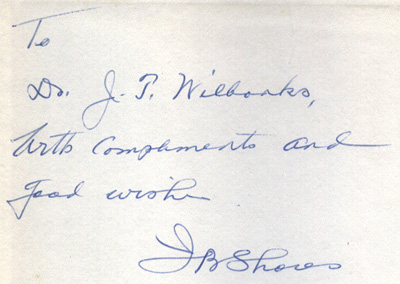 To
Dr. J. T. Wilbanks,
With compliments and
good wishes
J B Shores